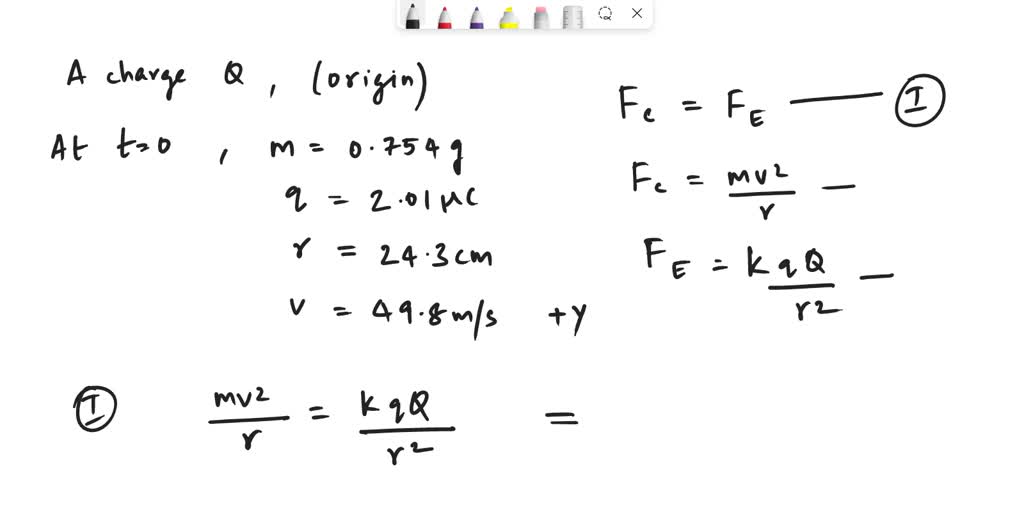 A charge Q, (origin)
At t=0, m = 0.754g
q = 2.01 μC
r = 24.3cm
v = 49.8m/s +y
Fc = FE —— I
Fc = mv²/r —
FE = kqQ/r² —
I mv²/r = kqQ/r² =